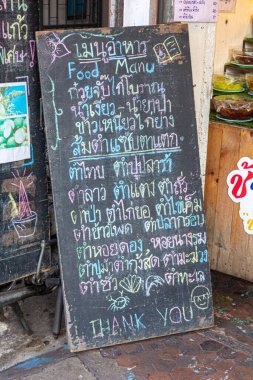 เมนูอาหาร
Food Manu
ก๋วยจั๊บโบราณ
น้ำเงี้ยว-น้ำยาป่า
ข้าวเหนียวไก่ย่าง
ส้มตำแซ่บตาแตก
ตำไทย ตำปูปลาร้า
ตำลาว ตำแตง ตำถั่ว
ตำป่า ตำไก่ยอ ตำไข่เค็ม
ตำข้าวโพด ตำปลากรอบ
ตำหอยดอง หอยนางรม
ตำปูม้า ตำกุ้งสด ตำมะม่วง
ตำทะเล
THANK YOU